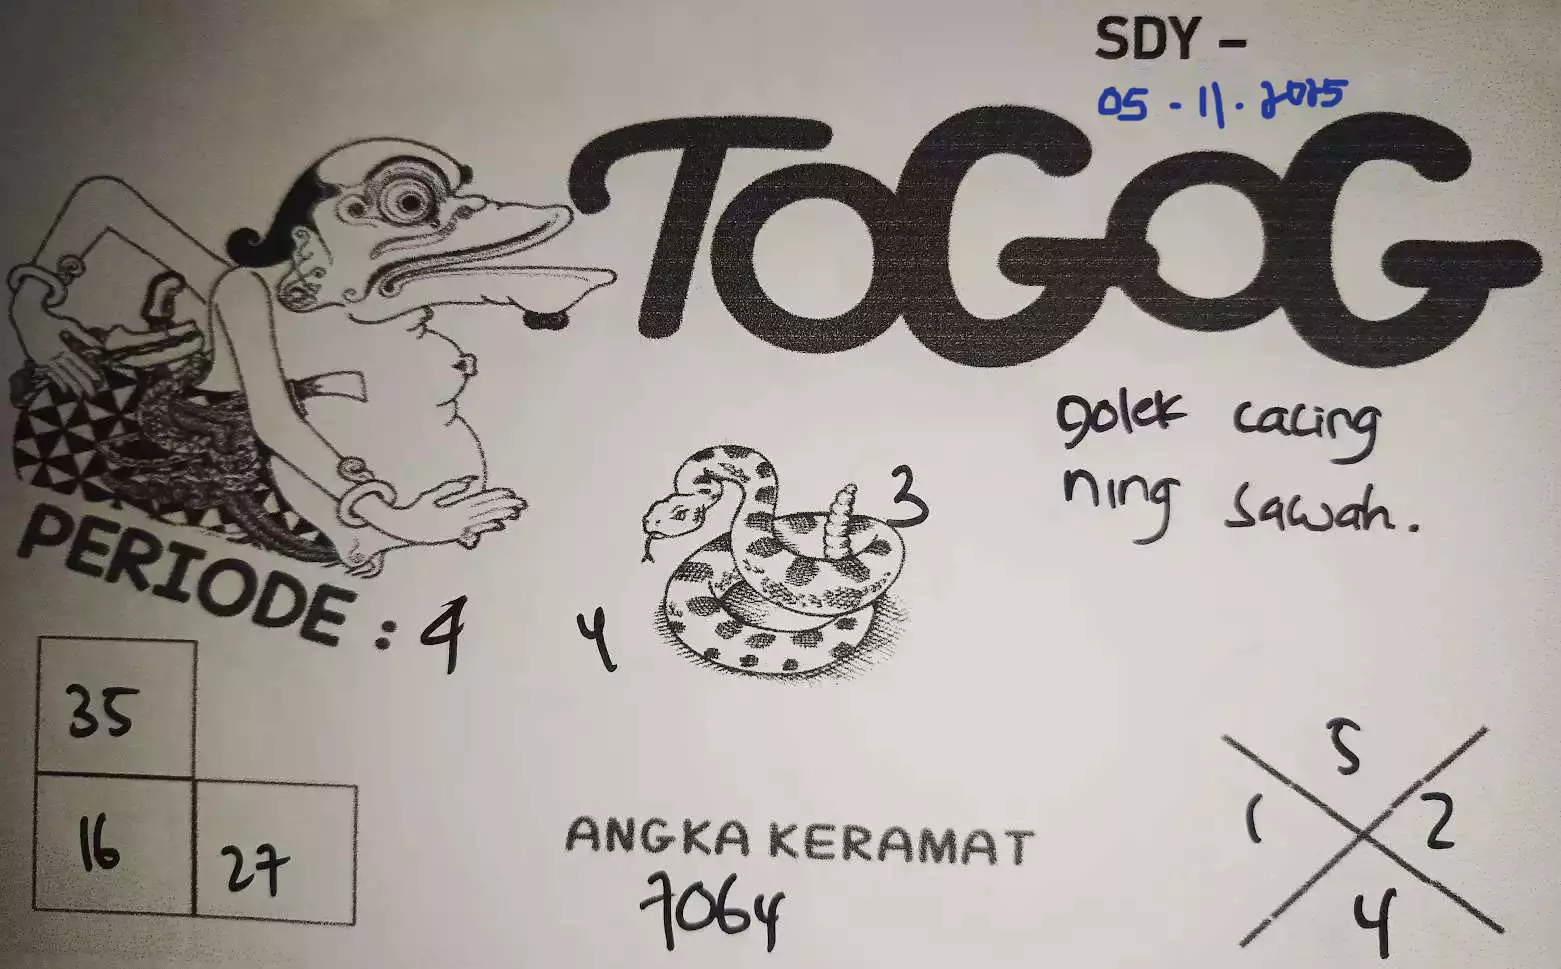 SDY -
05 - 11 . 2025
TOGOG
golek cacing
ning sawah.
3
PERIODE : 4
4
35
16
27
ANGKA KERAMAT
7064
5
1
2
4